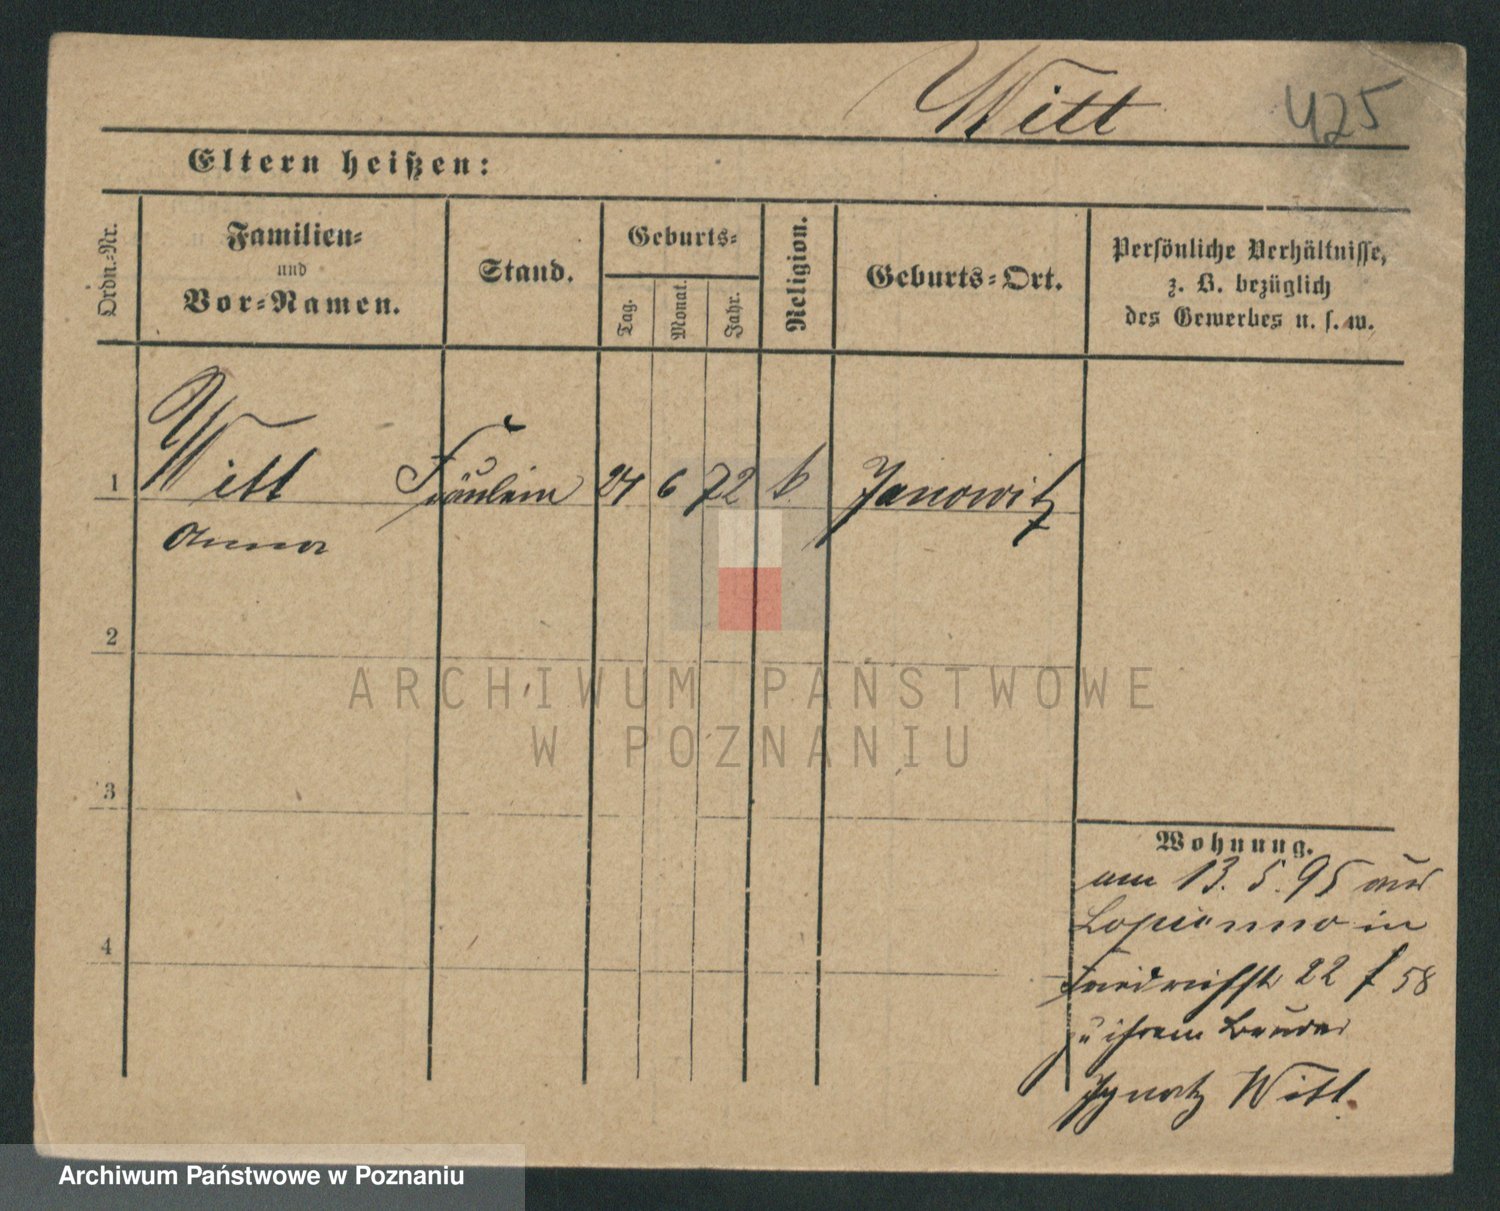 Witt 425
Eltern heißen:
Ordn.-Nr.
Familien-
und
Vor-Namen.
Stand.
Geburts-
Tag.
Monat.
Jahr.
Religion.
Geburts-Ort.
Persönliche Verhältnisse,
z. B. bezüglich
des Gewerbes u. s. w.
1 Witt Fräulein 24 6 72 k. Janowitz
Anna
2
3
4
Wohnung.
am 13. 5. 95 aus
Lopienno in
Friedrichstr 22 f 58
zu ihrem Bruder
Ignatz Witt.
ARCHIWUM PAŃSTWOWE
W POZNANIU
Archiwum Państwowe w Poznaniu